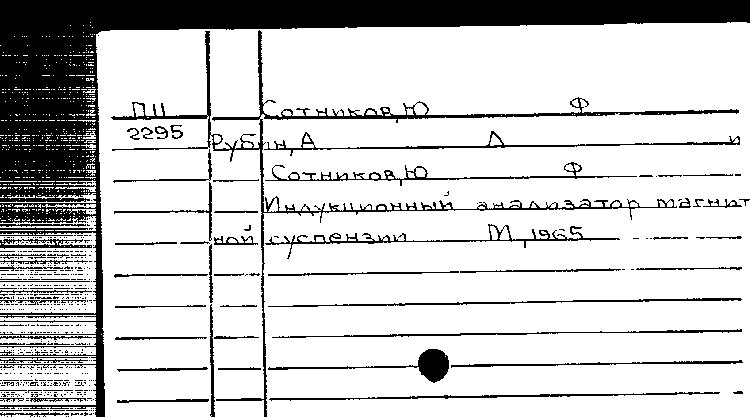 ПII Сотников, Ю Ф
2295 Рубин, А Л и
Сотников, Ю Ф
Индукционный анализатор магнит
ной суспензии М, 1965